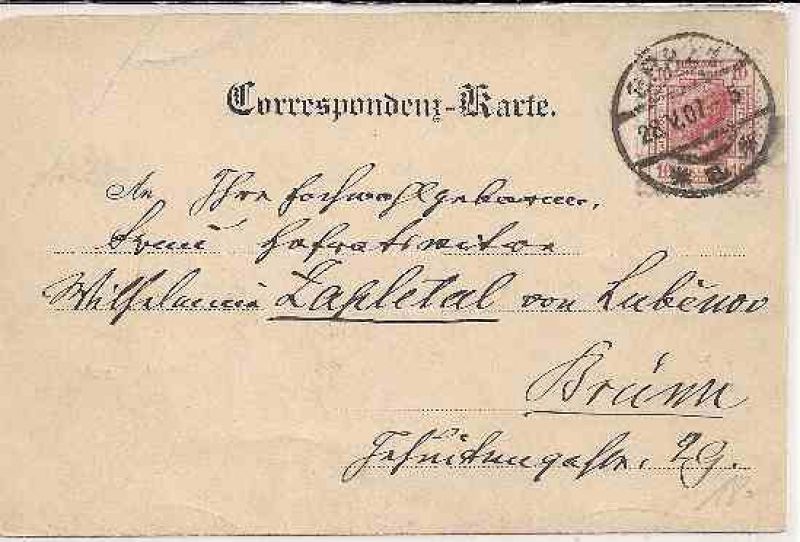 Correspondenz-Karte.
28.V.01
An Ihre Hochwohlgeboren,
Frau Hofratswitwe
Wilhelmine Zapletal von Lubĕnov
Brünn
Jesuitengasse. 29.